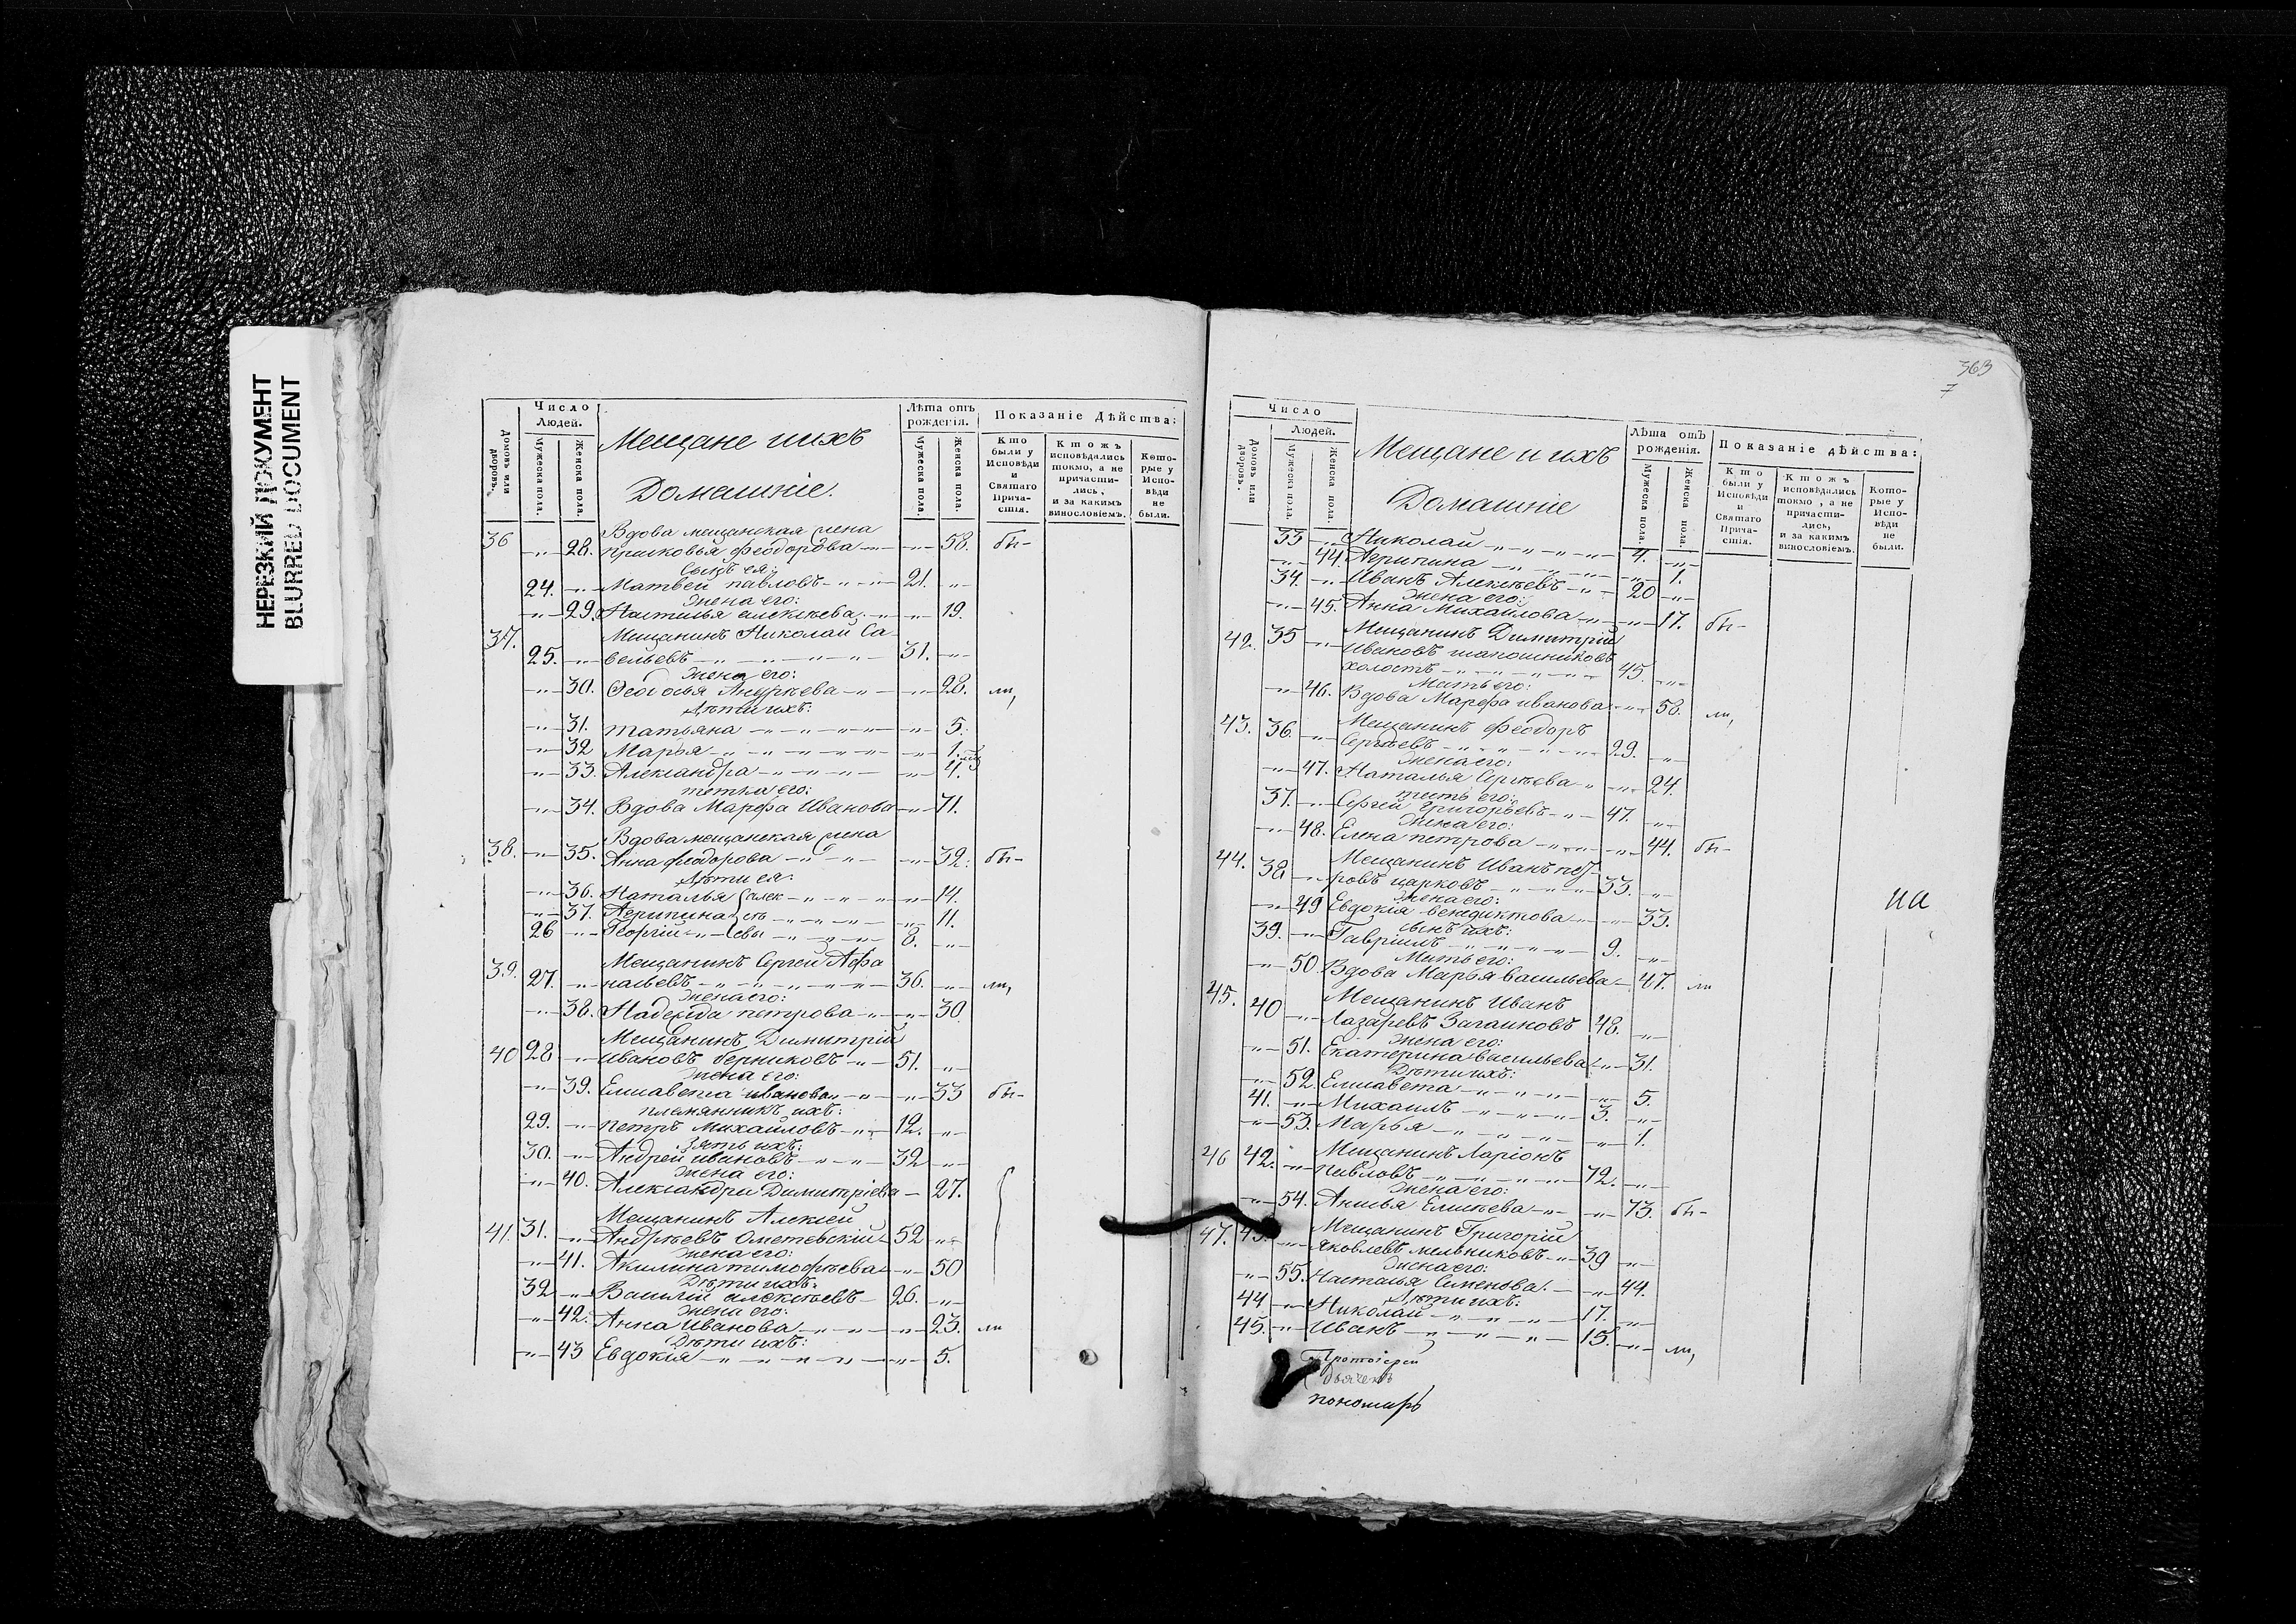 НЕРЕЗКИЙ ДОКУМЕНТ
BLURRED DOCUMENT
Число Людей.
Домовъ или дворовъ.
Мужеска пола.
Женска пола.
Мещане и ихъ
Домашніе.
Лѣта отъ рожденія.
Мужеска пола.
Женска пола.
Показаніе Дѣйства:
Кто были у Исповѣди и Святаго Причастія.
Ктожъ исповѣдались токмо, а не причастились, и за какимъ винословіемъ.
Которые у Исповѣди не были.
Вдова мещанская жена
36 -„- 28. Прасковья Феодорова -„- 58. бы-
Сынъ ея:
24. -„- Матвей Павловъ -„- 21. -„-
Жена его:
-„- 29. Наталья Алексѣева -„- 19.
37. Мещанинъ Николай Са
25. -„- вельевъ -„- 31. -„-
Жена его:
-„- 30. Феодосья Андреева -„- 28. ли,
Дѣти ихъ:
-„- 31. Татьяна -„- 5.
-„- 32 Марья -„- 1.
-„- 33. Александра -„- 4.
тетка его:
-„- 34. Вдова Марфа Иванова -„- 71.
Вдова мещанская жена
38. -„- 35. Анна Феодорова -„- 32. бы-
Дѣти ея:
-„- 36. Наталья Алек -„- 14.
-„- 37. Агрипина сѣ -„- 11.
26 -„- Георгій евы -„- 8. -„-
39. Мещанинъ Сергей Афа
27. -„- насьевъ -„- 36. -„- ли,
Жена его:
-„- 38. Надежда Петрова -„- 30
Мещанинъ Димитрій
40 28 -„- Ивановъ Берниковъ -„- 51. -„-
Жена его:
-„- 39. Елисавета Иванова -„- 33 бы-
племянникъ ихъ:
29. -„- Петръ Михайловъ -„- 12. -„-
Зять ихъ:
30. -„- Андрей Ивановъ -„- 32 -„-
Жена его:
-„- 40. Александра Димитріева - 27.
Мещанинъ Алексей
41. 31. -„- Андреевъ Ометевскій 52 -„-
Жена его:
-„- 41. Акилина Тимофѣева -„- 50
Дѣти ихъ:
32 -„- Василій Алексѣевъ - 26. -„-
Жена его:
-„- 42. Анна Иванова -„- 23. ли
Дѣти ихъ:
-„- 43 Евдокія -„- 5.
363
7
Число Людей.
Домовъ или дворовъ.
Мужеска пола.
Женска пола.
Мещане и ихъ
Домашніе
Лѣта отъ рожденія.
Мужеска пола.
Женска пола.
Показаніе дѣйства:
Кто были у Исповѣди и Святаго Причастія.
Ктожъ исповѣдались токмо, а не причастились, и за какимъ винословіемъ.
Которые у Исповѣди не были.
33 -„- Николай -„- 4. -„-
-„- 44. Агрипина -„- 1.
34. -„- Иванъ Алексѣевъ -„- 20 -„-
Жена его:
-„- 45. Анна Михайлова -„- 17. бы-
Мещанинъ Димитрій
42. 35 -„- Ивановъ Шапошниковъ
холостъ -„- 45. -„-
Мать его:
-„- 46. Вдова Марфа Иванова -„- 58. ли,
Мещанинъ Феодоръ
43. 36. -„- Сергѣевъ -„- 29. -„-
Жена его:
-„- 47. Наталья Сергѣева -„- 24.
тесть его:
37. -„- Сергей Григорьевъ -„- 47. -„-
Жена его:
-„- 48. Елена Петрова -„- 44. бы-
Мещанинъ Иванъ Пет
44. 38 -„- ровъ Царковъ -„- 33. -„-
Жена его:
-„- 49 Евдокія Венедиктова -„- 33.
сынъ ихъ:
39. -„- Гавріилъ -„- 9. -„-
Мать его:
-„- 50. Вдова Марья Васильева - 47. ли
на
45. Мещанинъ Иванъ
40 -„- Лазаревъ Загаиновъ 48. -„-
Жена его:
-„- 51. Екатерина Васильева -„- 31.
Дѣти ихъ:
-„- 52. Елисавета -„- 5.
41. -„- Михаилъ -„- 3. -„-
-„- 53. Марья -„- 1.
Мещанинъ Ларіонъ
46 42. -„- Павловъ -„- 72. -„-
Жена его:
-„- 54. Анисья Елисѣева -„- 73. бы-
Мещанинъ Григорій
47. 43. -„- Яковлевъ Мельниковъ -„- 39 -„-
Жена его:
-„- 55. Наталья Семенова -„- 44.
Дѣти ихъ:
44 -„- Николай -„- 17. -„-
45. -„- Иванъ -„- 15. -„- ли,
Протоіерей
Дьячекъ
пономарь